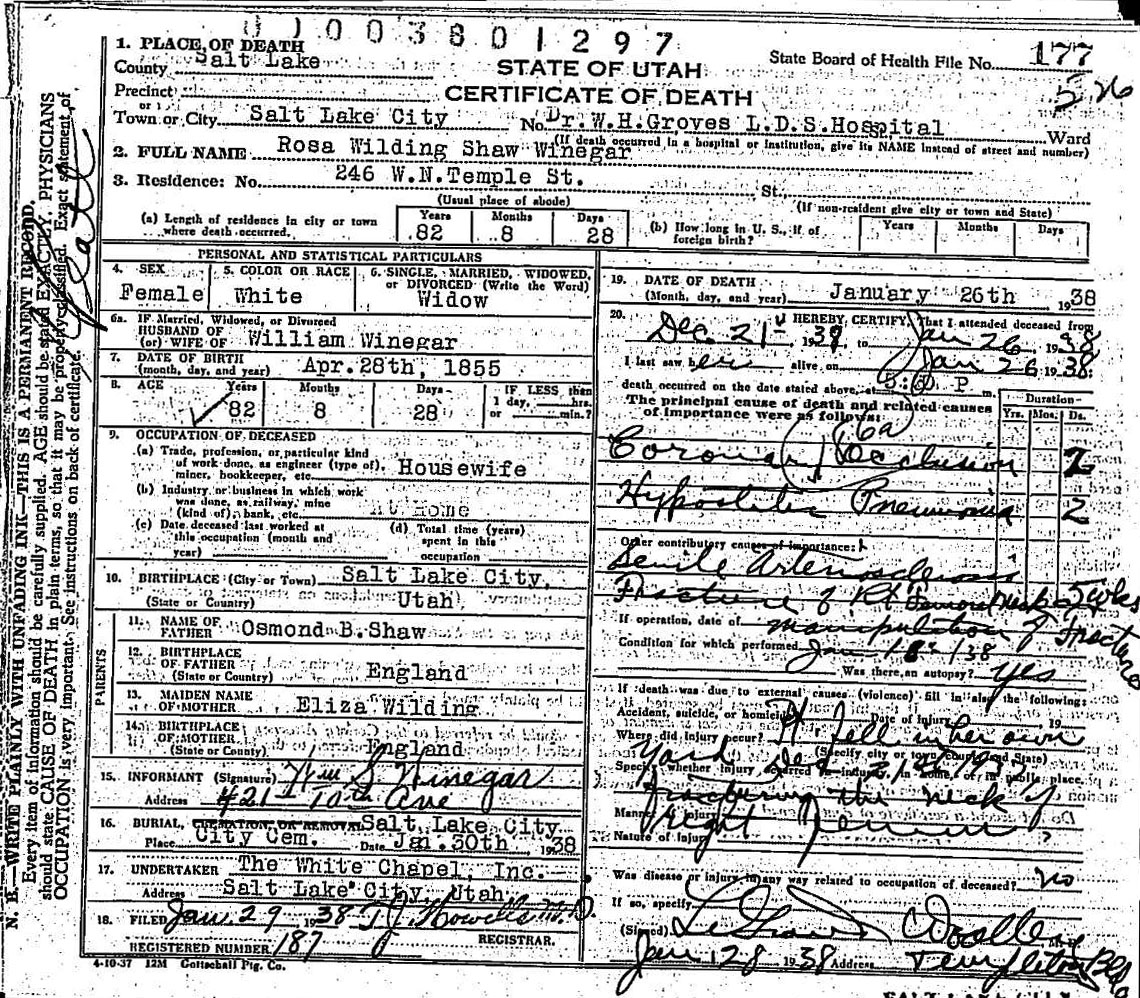 01003801297
1. PLACE OF DEATH
County Salt Lake
STATE OF UTAH
State Board of Health File No. 177
Precinct
CERTIFICATE OF DEATH
526
or
Town or City Salt Lake City No. Dr. W.H.Groves L.D.S.Hospital Ward
(If death occurred in a hospital or institution, give its NAME instead of street and number)
2. FULL NAME Rosa Wilding Shaw Winegar
3. Residence: No. 246 W.N.Temple St. St.
(Usual place of abode) (If non-resident give city or town and State)
(a) Length of residence in city or town where death occurred. Years 82 Months 8 Days 28
(b) How long in U. S., if of foreign birth? Years Months Days
PERSONAL AND STATISTICAL PARTICULARS
4. SEX Female
5. COLOR OR RACE White
6. SINGLE, MARRIED, WIDOWED, or DIVORCED (Write the Word) Widow
6a. IF Married, Widowed, or Divorced
HUSBAND OF
(or) WIFE OF William Winegar
7. DATE OF BIRTH
(month, day, and year) Apr.28th, 1855
8. AGE Years 82 Months 8 Days 28 IF LESS than 1 day, hrs. or min.?
9. OCCUPATION OF DECEASED
(a) Trade, profession, or particular kind of work done, as engineer (type of), miner, bookkeeper, etc. Housewife
(b) Industry or business in which work was done, as railway, mine (kind of), bank, etc. At Home
(c) Date deceased last worked at this occupation (month and year)
(d) Total time (years) spent in this occupation
10. BIRTHPLACE (City or Town) Salt Lake City,
(State or Country) Utah
PARENTS
11. NAME OF FATHER Osmond B.Shaw
12. BIRTHPLACE OF FATHER
(State or Country) England
13. MAIDEN NAME OF MOTHER Eliza Wilding
14. BIRTHPLACE OF MOTHER
(State or County) England
15. INFORMANT (Signature) Wm S. Winegar
Address 421 10th Ave
16. BURIAL, CREMATION, OR REMOVAL Salt Lake City
Place City Cem. Date Jan.30th, 1938
17. UNDERTAKER The White Chapel, Inc.
Address Salt Lake City, Utah
18. FILED Jan 29 1938 T.J. Howells M.D.
REGISTRAR.
REGISTERED NUMBER 187
4-10-37 12M Gottschall Ptg. Co.
19. DATE OF DEATH
(Month, day, and year) January 26th 1938
20. I HEREBY CERTIFY, That I attended deceased from
Dec. 21 1937, to Jan 26 1938
I last saw her alive on Jan 26 1938
death occurred on the date stated above, at P. m.
The principal cause of death and related causes of importance were as follows:
Duration
Yrs. Mos. Ds.
Coronary Occlusion 2
Hypostatic Pneumonia 2
Other contributory causes of importance:
Senile Arteriosclerosis
Fracture of Rt femoral neck 5 wks
If operation, date of manipulation of Fracture
Condition for which performed Jan 18 /38
Was there an autopsy? Yes
If death was due to external causes (violence) fill in also the following:
Accident, suicide, or homicide? Date of injury 19
Where did injury occur? fell in her own
(Specify city or town, county and State)
yard Dec 21/1937
Specify whether injury occurred in industry, in home, or in public place.
fracturing the neck of
Manner of injury right femur
Nature of injury
Was disease or injury in any way related to occupation of deceased? no
If so, specify
(Signed) Woolley M.D.
Jan 28 1938 Address Templeton Bld
N. B.—WRITE PLAINLY WITH UNFADING INK—THIS IS A PERMANENT RECORD.
Every item of information should be carefully supplied. AGE should be stated EXACTLY. PHYSICIANS
should state CAUSE OF DEATH in plain terms, so that it may be properly classified. Exact statement of
OCCUPATION is very important. See instructions on back of certificate.